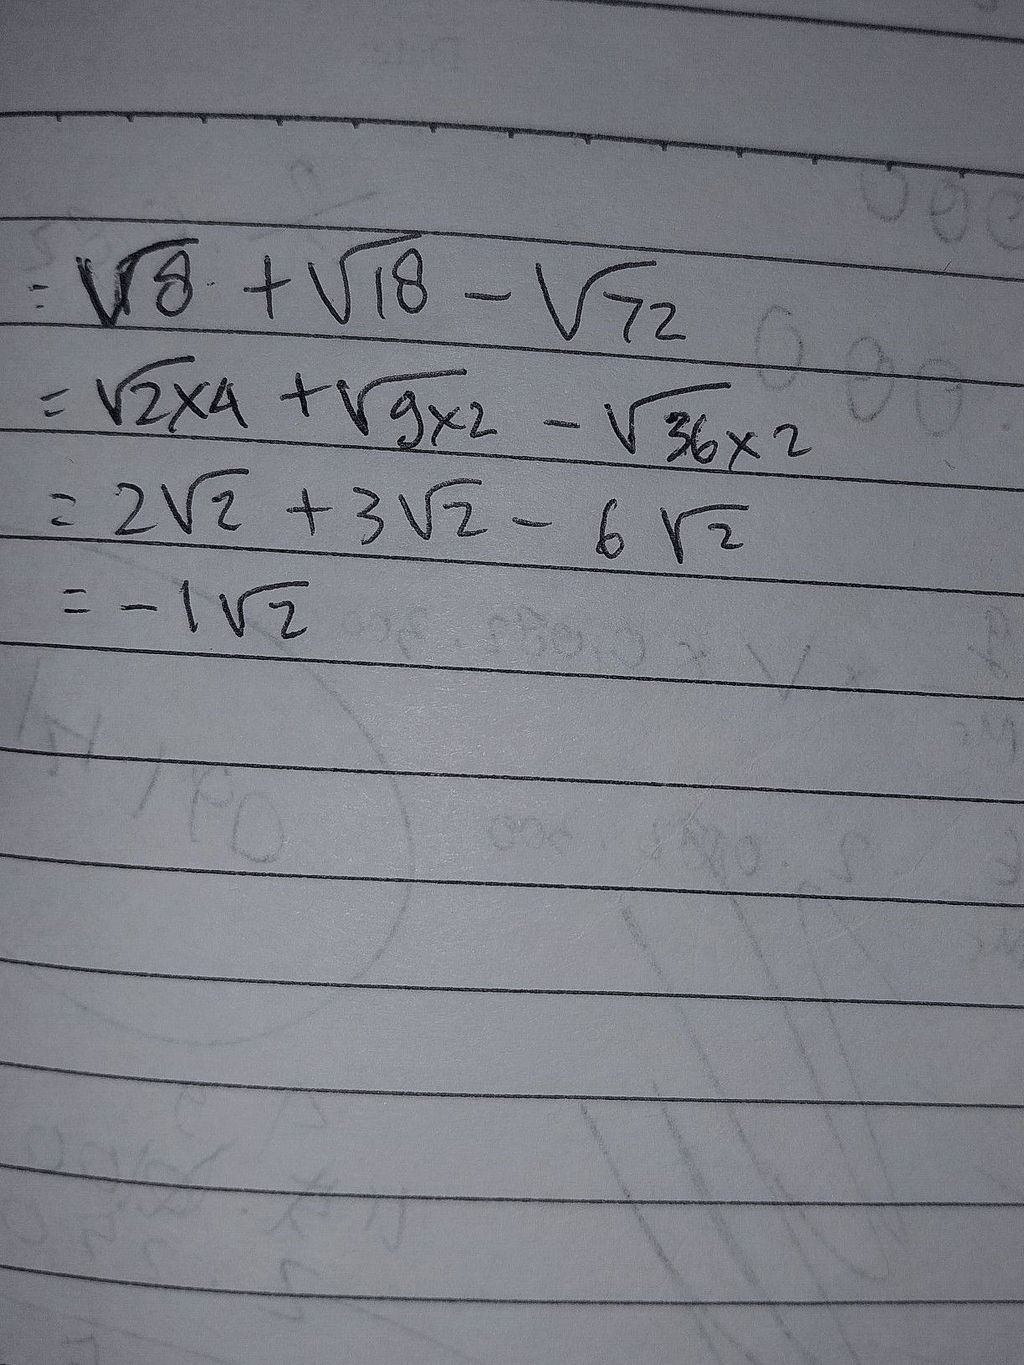 = √8 + √18 - √72
= √2×4 + √9×2 - √36×2
= 2√2 + 3√2 - 6√2
= -1√2